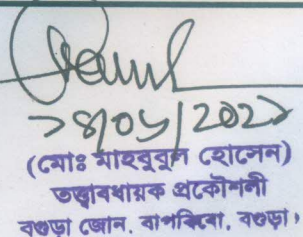 ১৪/০৬/২০২১
(মোঃ মাহবুবুল হোসেন)
তত্ত্বাবধায়ক প্রকৌশলী
বগুড়া জোন, বাপবিবো, বগুড়া।